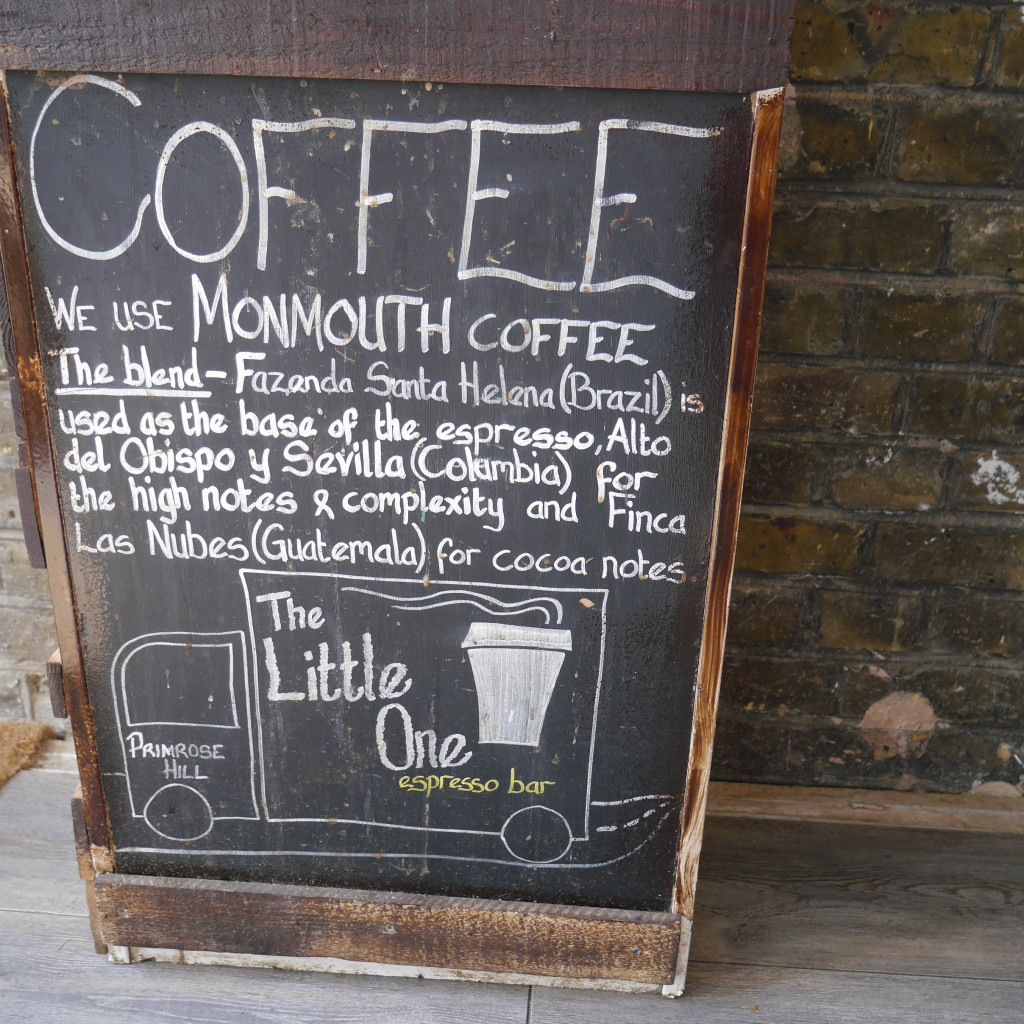 COFFEE
WE USE MONMOUTH COFFEE
The blend - Fazenda Santa Helena (Brazil) is
used as the base of the espresso, Alto
del Obispo y Sevilla (Colambia) for
the high notes & complexity and Finca
Las Nubes (Guatemala) for cocoa notes.
The
Little
One
espresso bar
PRIMROSE
HILL